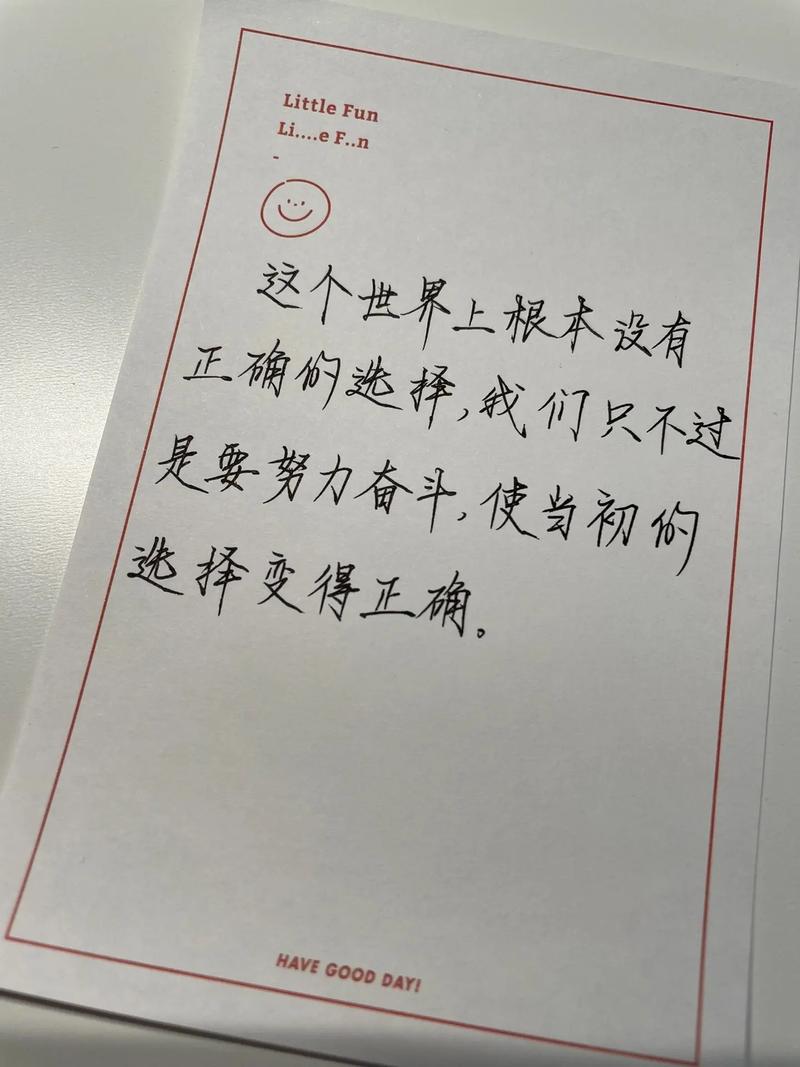 Little Fun
Li....e F..n
-
这个世界上根本没有
正确的选择,我们只不过
是要努力奋斗,使当初的
选择变得正确。
HAVE GOOD DAY!